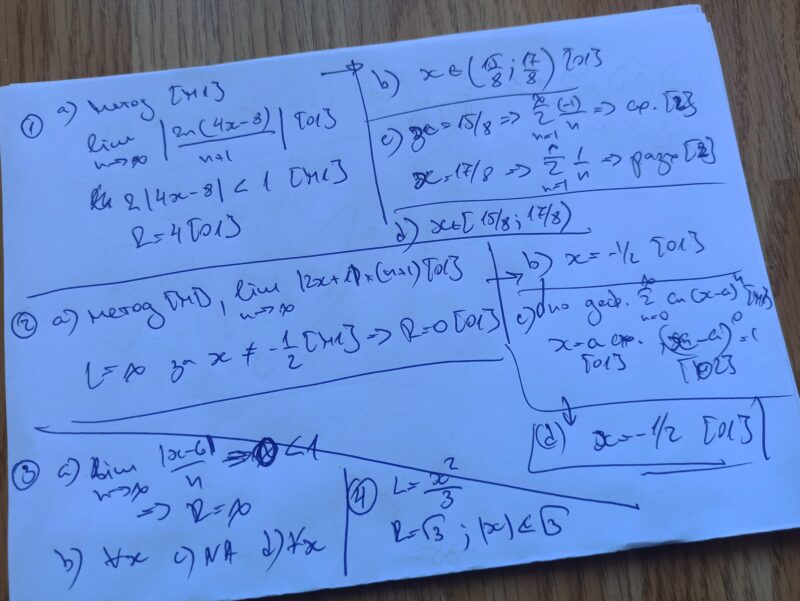 ① a) метод [M1]
lim n→∞ |2n(4x-8)/n+1| [01]
2|4x-8| < 1 [M1]
R=4 [01]
b) x∈(15/8; 17/8) [01]
c) x=15/8 => ∞Σn=1 (-1)/n => ср. [2]
x=17/8 => Σn=1 1/n => разх [2]
d) x∈[15/8; 17/8)
② a) метод [M1], lim n→∞ |2x+1|×(n+1) [01]
L=∞ за x ≠ -1/2 [M1] => R=0 [01]
b) x=-1/2 [01]
c) по деф. ∞Σn=0 cn(x-a)^n [M1]
x=a ср. ( -a)^0=1
[01] [02]
(d) x=-1/2 [01]
③ a) lim n→∞ |x-6|/n => 0 < 1
=> R=∞
b) ∀x c) NA d) ∀x
④ L=x²/3
R=√3 ; |x|<√3